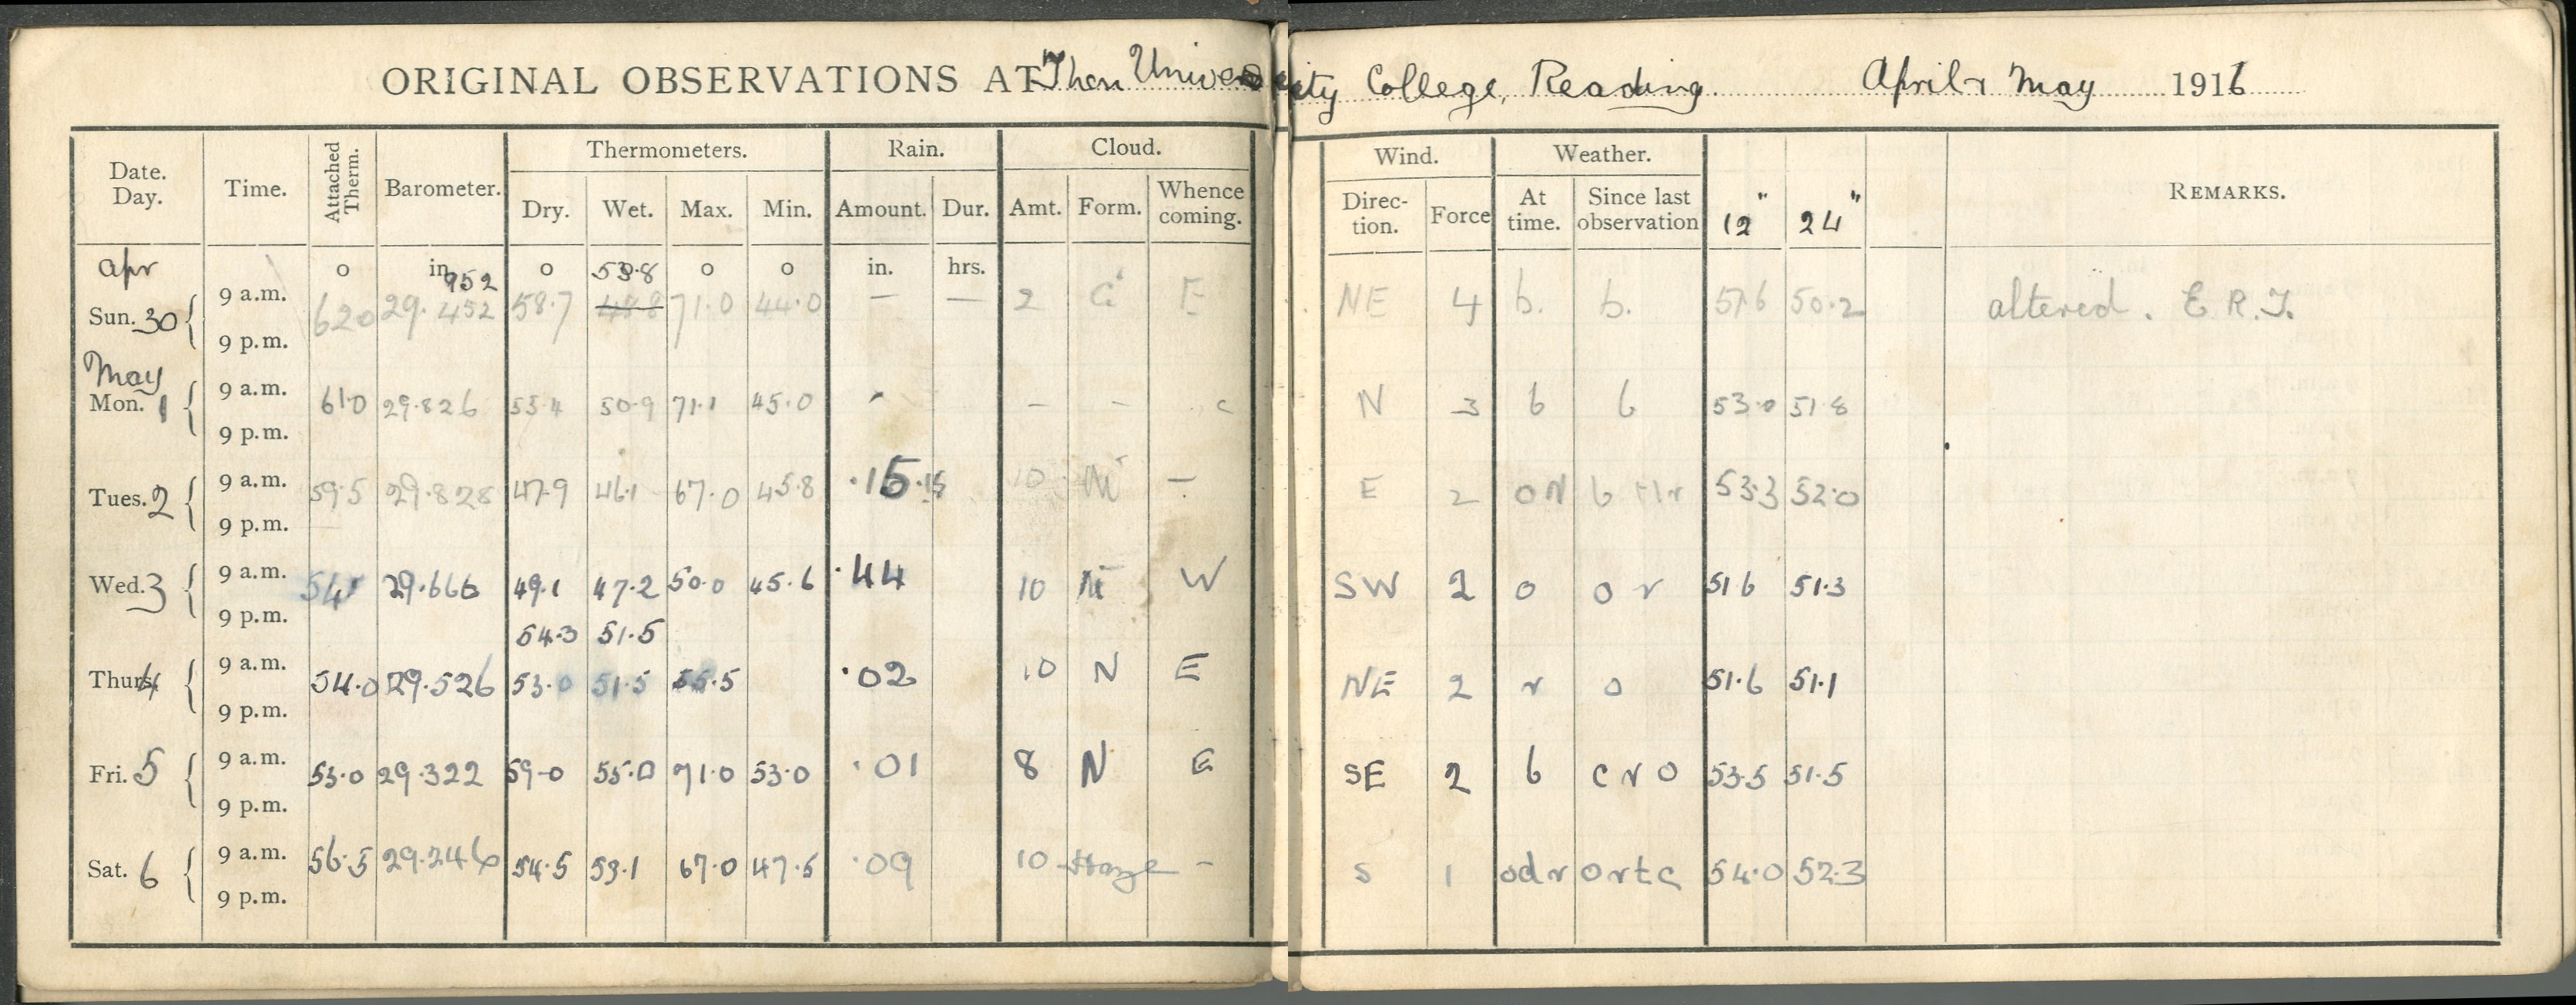 ORIGINAL OBSERVATIONS AT The University College, Reading. April & May 1916
Date. Day. Time. Attached Therm. Barometer. Thermometers. Rain. Cloud. Wind. Weather. 12" 24" REMARKS.
Dry. Wet. Max. Min. Amount. Dur. Amt. Form. Whence coming. Direction. Force At time. Since last observation
Apr o in. 952 o 53.8 o o in. hrs.
Sun. 30 9 a.m. 62.0 29.452 58.7 48.8 71.0 44.0 — — 2 Ci E NE 4 b. b. 51.6 50.2 altered. E R.T.
9 p.m.
May
Mon. 1 9 a.m. 61.0 29.826 55.4 50.9 71.1 45.0 - – – c N 3 b b 53.0 51.8
9 p.m.
Tues. 2 9 a.m. 59.5 29.828 47.9 46.1 67.0 45.8 .15 .15 10 — E 2 b 53.3 52.0
9 p.m.
Wed. 3 9 a.m. 54 29.666 49.1 47.2 50.0 45.6 .44 10 W SW 2 o o r 51.6 51.3
9 p.m. 54.3 51.5
Thurs. 4 9 a.m. 54.0 29.526 53.0 51.5 55.5 .02 10 N E NE 2 r o 51.6 51.1
9 p.m.
Fri. 5 9 a.m. 53.0 29.322 59.0 55.0 71.0 53.0 .01 8 N E SE 2 b c r o 53.5 51.5
9 p.m.
Sat. 6 9 a.m. 56.5 29.246 54.5 53.1 67.0 47.5 .09 10 Haze - S 1 odr ortc 54.0 52.3
9 p.m.